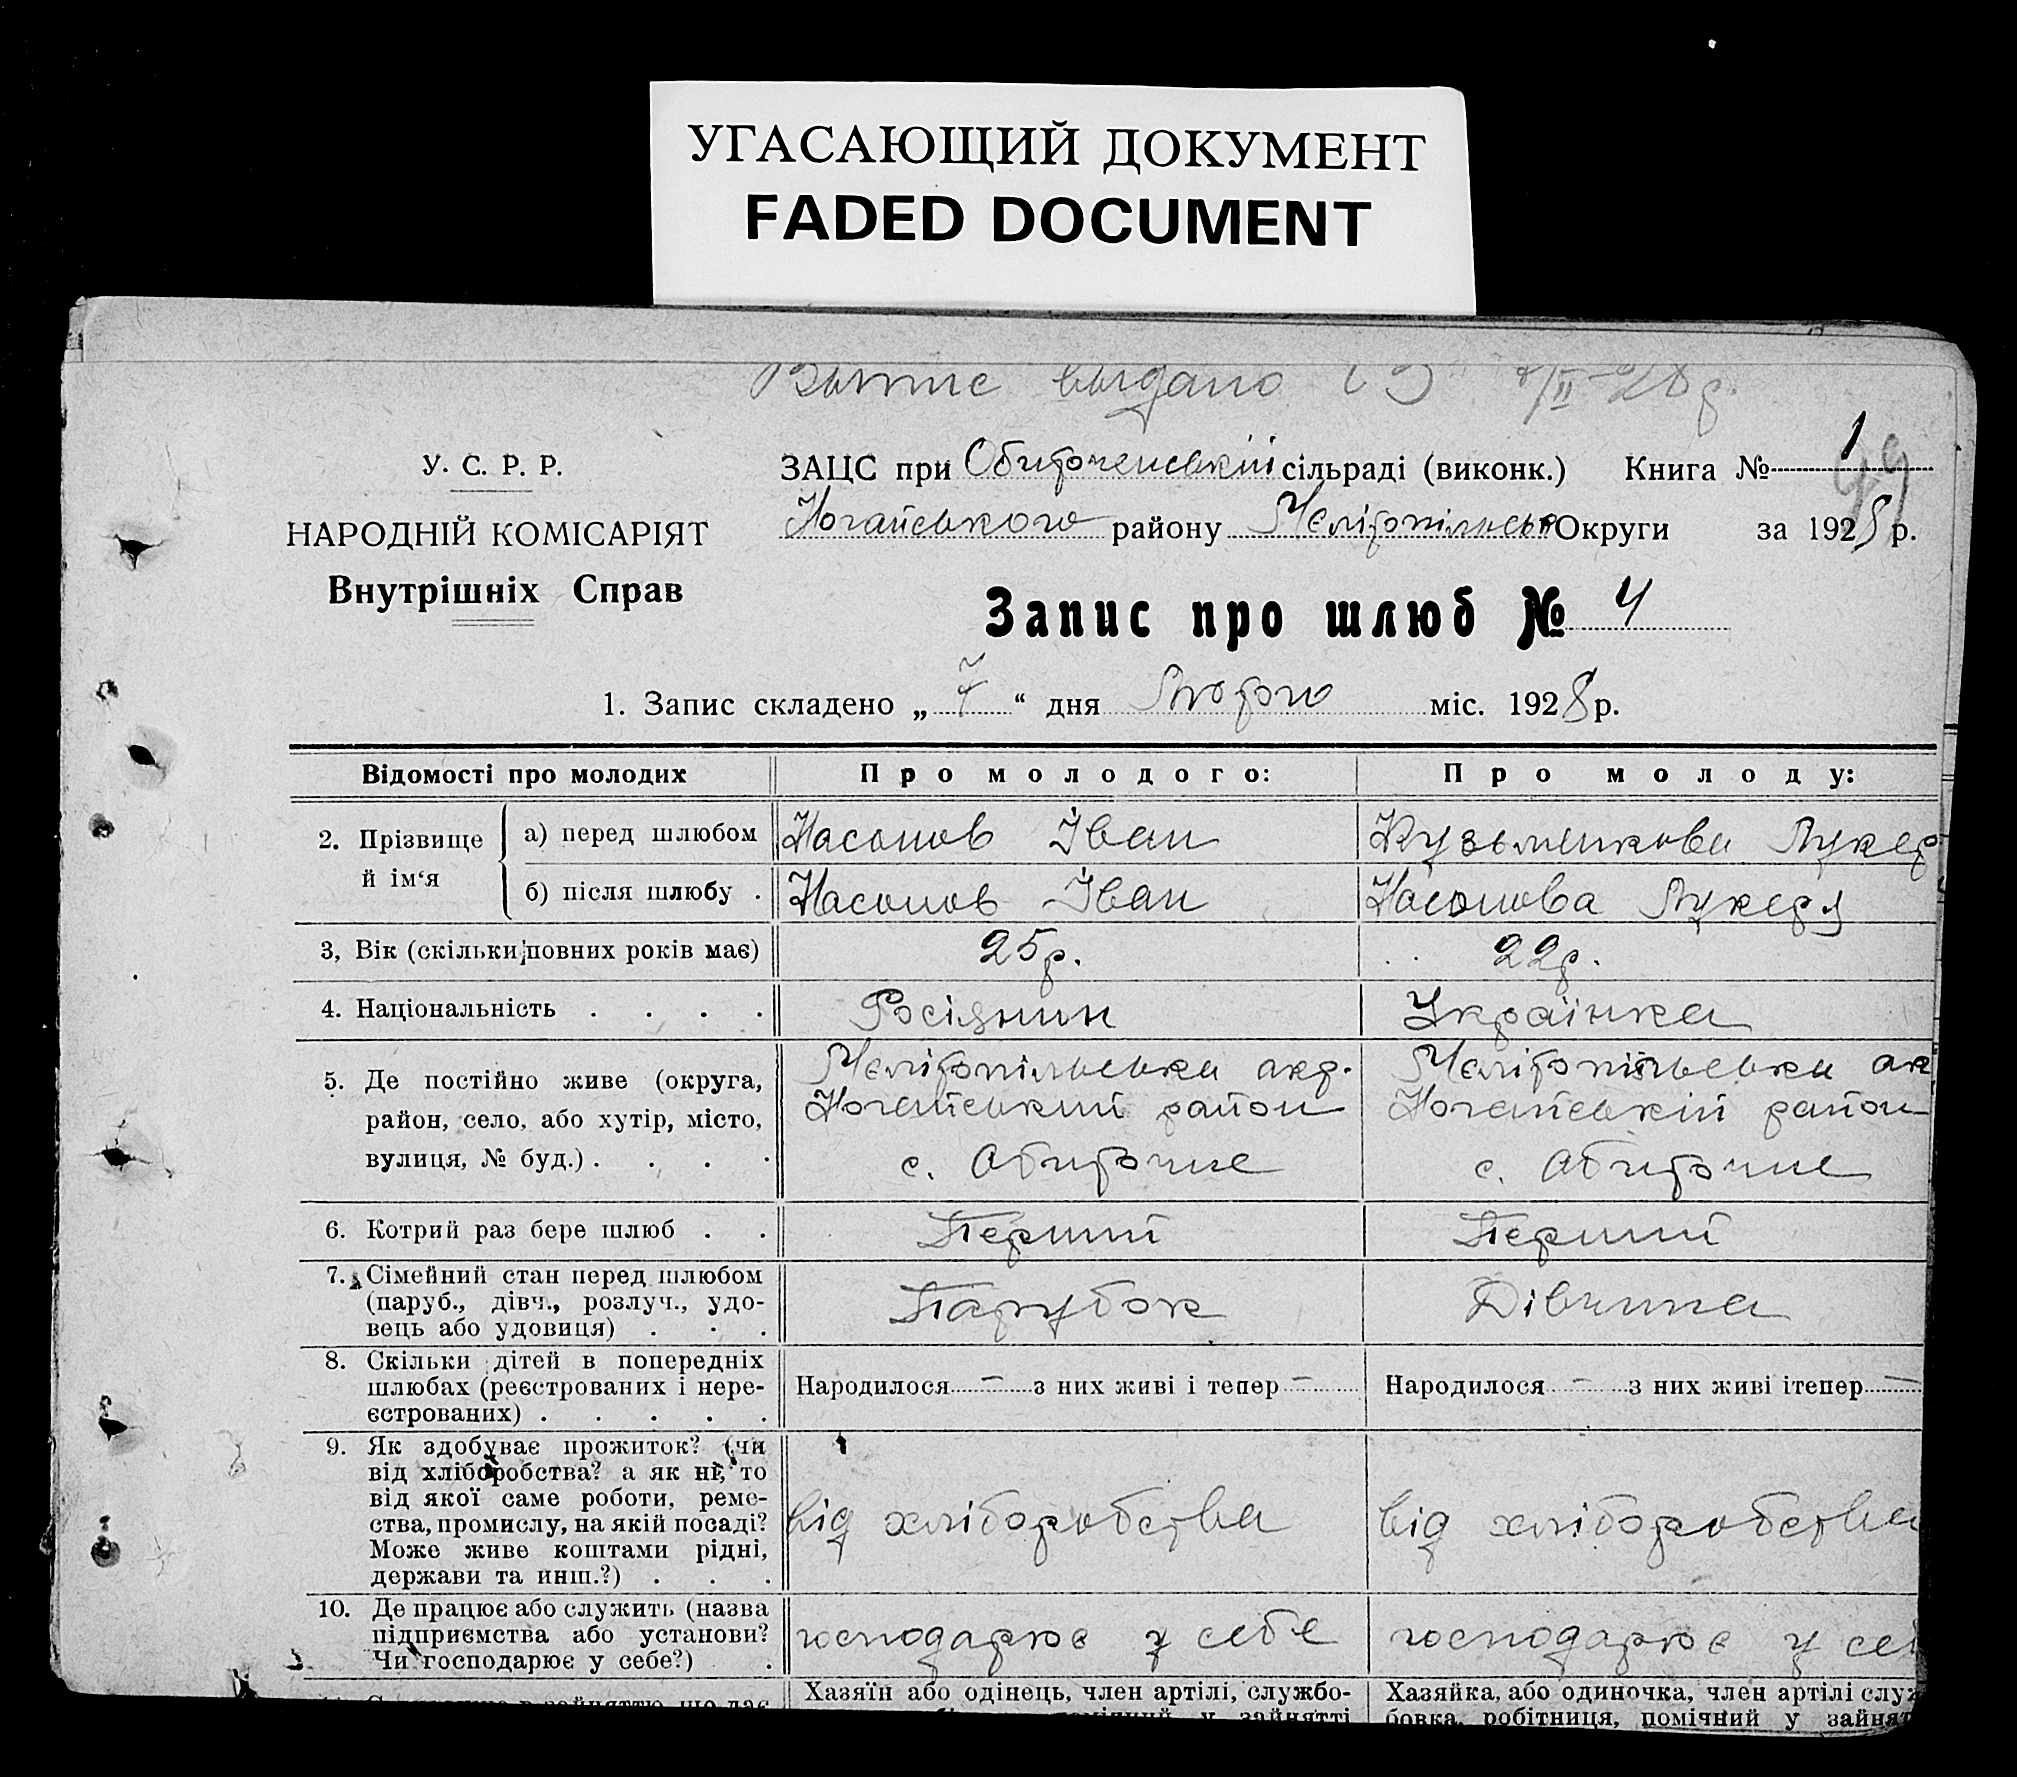 УГАСАЮЩИЙ ДОКУМЕНТ
FADED DOCUMENT
видано 7/II-28р.
У. С. Р. Р.
НАРОДНІЙ КОМІСАРІЯТ
Внутрішніх Справ
ЗАЦС при Обиточенській сільраді (виконк.) Книга № 1
49
Ногайського району Мелітопільськ Округи за 1928 р.
Запис про шлюб № 4
1. Запис складено „ 7 “ дня Лютого міс. 1928 р.
Відомості про молодих
Про молодого:
Про молоду:
2. Прізвище й ім‘я
а) перед шлюбом
Насонов Іван
Лукер
б) після шлюбу .
Насонов Іван
Насонова Лукеря
3, Вік (скільки повних років має)
25р.
22р.
4. Національність . . . .
Росіянин
Українка
5. Де постійно живе (округа,
район, село, або хутір, місто,
вулиця, № буд.) . . . .
Мелітопільська окр.
Ногайський район
с. Обиточне
Мелітопільська ок
Ногайській район
с. Обиточне
6. Котрий раз бере шлюб . .
Перший
Перший
7. Сімейний стан перед шлюбом
(паруб., дівч., розлуч., удо-
вець або удовиця) . . .
Парубок
Дівчина
8. Скільки дітей в попередніх
шлюбах (реєстрованих і нере-
єстрованих) . . . . .
Народилося — з них живі і тепер —
Народилося — з них живі ітепер —
9. Як здобуває прожиток? (чи
від хліборобства? а як ні, то
від якої саме роботи, реме-
ства, промислу, на якій посаді?
Може живе коштами рідні,
держави та инш.?) . . .
від хліборобства
від хліборобства
10. Де працює або служить (назва
підприємства або установи?
Чи господарює у себе?) .
господарює у себе
господарює у себ
Хазяїн або одінець, член артілі, службо-
у зайнятті
Хазяйка, або одиночка, член артілі служ
бовка, робітниця, помічний у зайнят